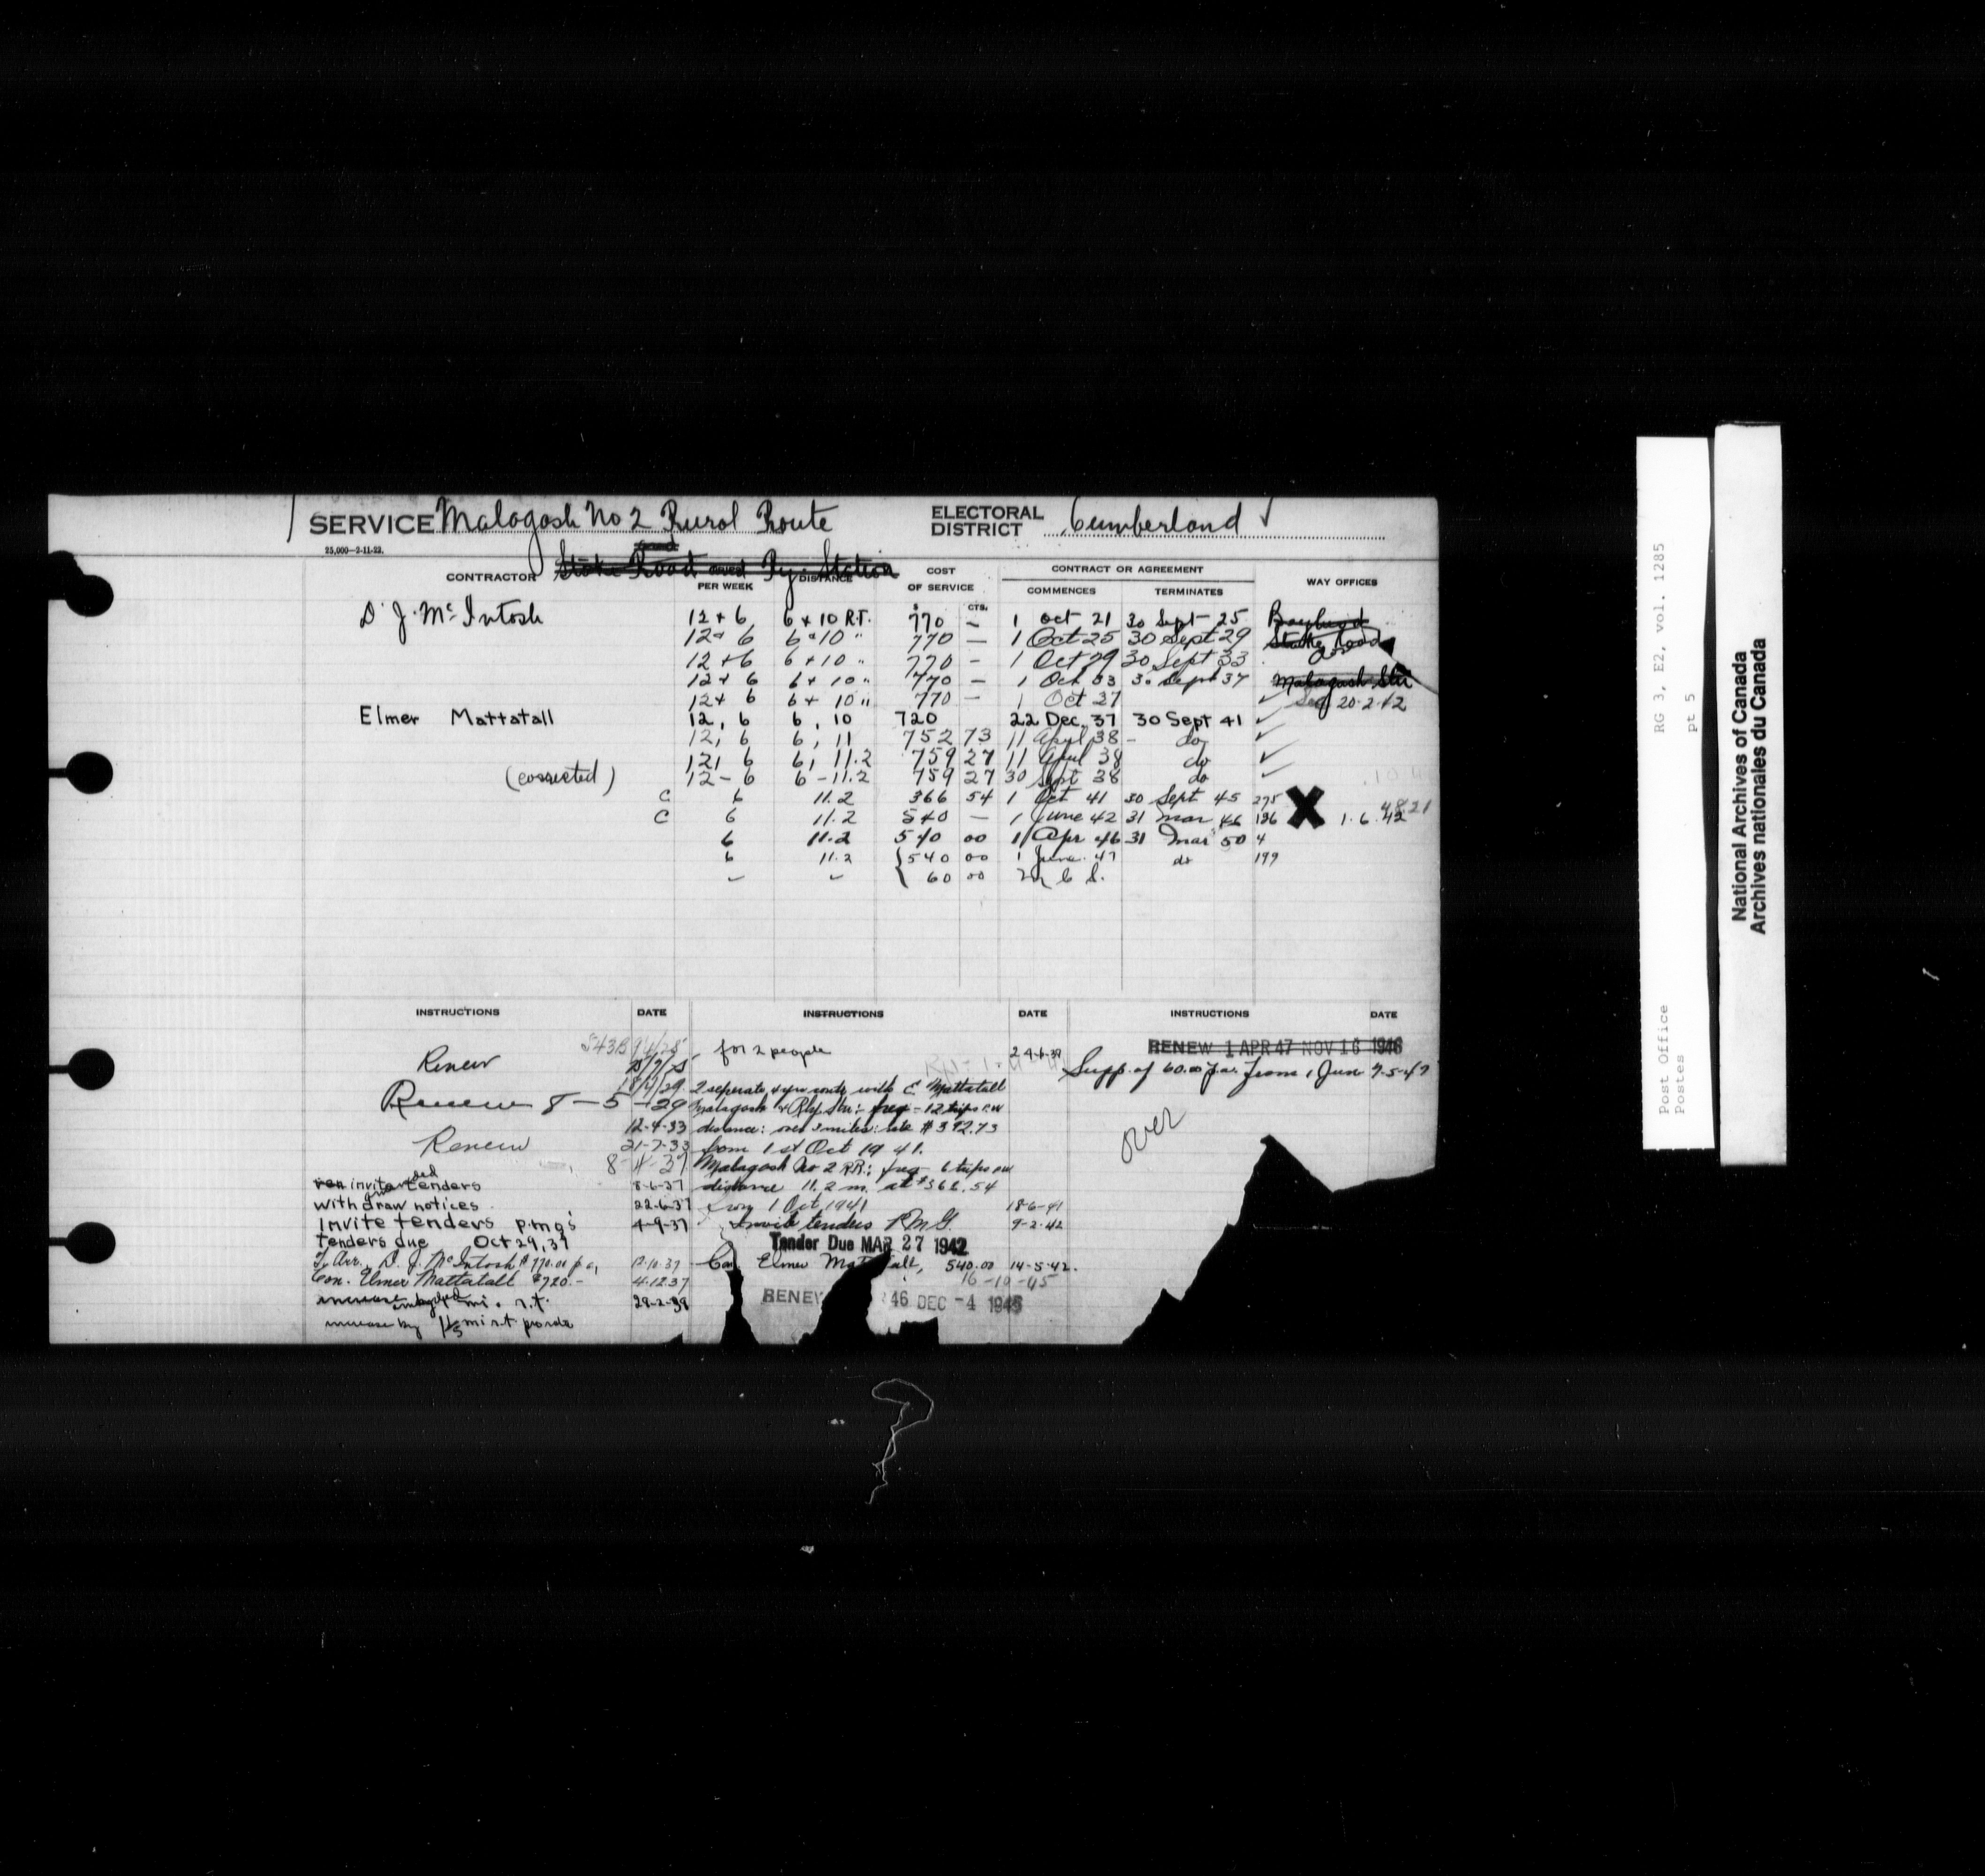 SERVICE Malagash No 2 Rural Route ELECTORAL DISTRICT Cumberland
25,000—2-11-23.
and
Stake Road Ry. Station
CONTRACTOR PER WEEK DISTANCE COST OF SERVICE CONTRACT OR AGREEMENT COMMENCES TERMINATES WAY OFFICES
$ CTS.
D. J. McIntosh 12 + 6 6 + 10 R.T. 770 — 1 Oct 21 30 Sept 25
12 + 6 6 + 10 " 770 — 1 Oct 25 30 Sept 29 Stake Road
12 + 6 6 + 10 " 770 — 1 Oct 29 30 Sept 33
12 + 6 6 + 10 " 770 — 1 Oct 33 30 Sept 37 Malagash Stn
12 + 6 6 + 10 " 770 — 1 Oct 37 20-2-42
Elmer Mattatall 12, 6 6, 10 720 22 Dec. 37 30 Sept 41
12, 6 6, 11 752 73 11 April 38 - do
12, 6 6, 11.2 759 27 11 April 38 do
(corrected) 12 - 6 6 - 11.2 759 27 30 Sept 38 do
C 6 11.2 366 54 1 Oct 41 30 Sept 45 275
C 6 11.2 540 — 1 June 42 31 Mar 46 136 X 1.6.42
6 11.2 540 00 1 Apr 46 31 Mar 50 4
6 11.2 { 540 00 1 June 47 do 199
{ 60 00
INSTRUCTIONS DATE INSTRUCTIONS DATE INSTRUCTIONS DATE
Renew
for 2 people
RENEW 1 APR 47 NOV 16 1946
Supp. of 60.00 p.a. from 1 June 7-5-47
Renew 8-5-29
2 seperate 4 yr routes with E. Mattatall
Malagash & Rly Stn: freq - 12 trips P.W
12-4-33 distance: over 3 miles: rate $392.73
Renew 21-7-33 from 1st Oct 1941.
8-4-37 Malagash No 2 RR.: freq 6 trips P.W
invite tenders 8-6-37 distance 11.2 m. at $366.54
withdraw notices 22-6-37 from 1 Oct 1941 18-6-41
Invite tenders P.M.G's 4-9-37 Invite tenders P.M.G. 9-2-42
tenders due Oct 29, 37 Tender Due MAR 27 1942
T. Arr. D. J. McIntosh $770.00 p.a. 12-10-37 Con Elmer Mattatall, 540.00 14-5-42.
Con. Elmer Mattatall $720.- 4.12.37 16-10-45
increase mi. r.t. 29-2-38 RENEW 46 DEC -4 1945
increase by mi r.t.
over
RG 3, E2, vol. 1285
pt 5
Post Office
Postes
National Archives of Canada
Archives nationales du Canada